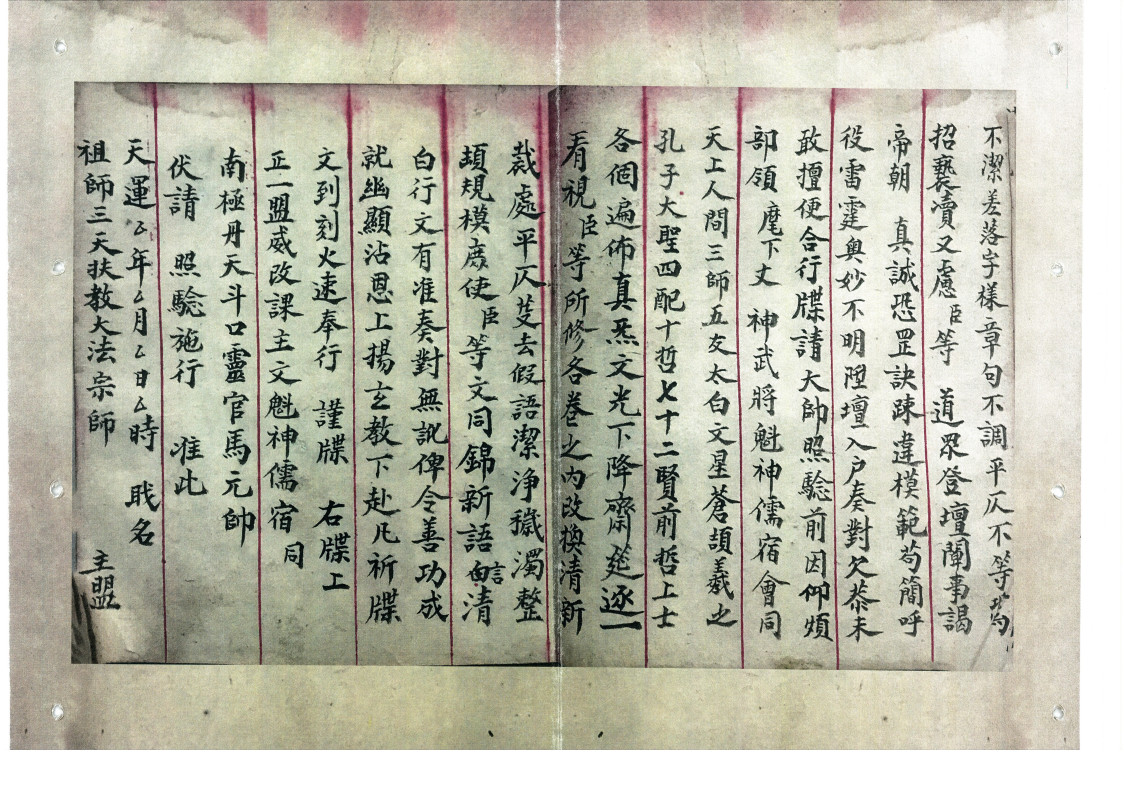 不潔差落字樣章句不調平仄不等均
招褻瀆又慮臣等 道眾登壇闡事謁
帝朝 真誠恐罡訣踈違模範苟簡呼
役雷霆奥妙不明陞壇入户奏對欠恭未
敢擅便合行牒請大帥照驗前因仰煩
部領麾下丈 神武將魁神儒宿會同
天上人間三師五友太白文星蒼頡羲之
孔子大聖四配十哲七十二賢前哲上士
各個遍佈真炁文光下降齋筵逐一
看視臣等所修各巻之内改換清新
裁處平仄芟去假語潔浄穢濁整
頡規模庻使臣等文同錦新語言清
白行文有准奏對無訛俾令善功成
就幽顯沾恩上揚玄教下赴凡祈牒
文到刻火速奉行 謹牒 右牒上
正一盟威改課主文魁神儒宿 同
南極丹天斗口靈官馬元帥
伏請 照驗施行 准此
天運 年 月 日 時 戝名
祖師三天扶教大法宗師 主盟